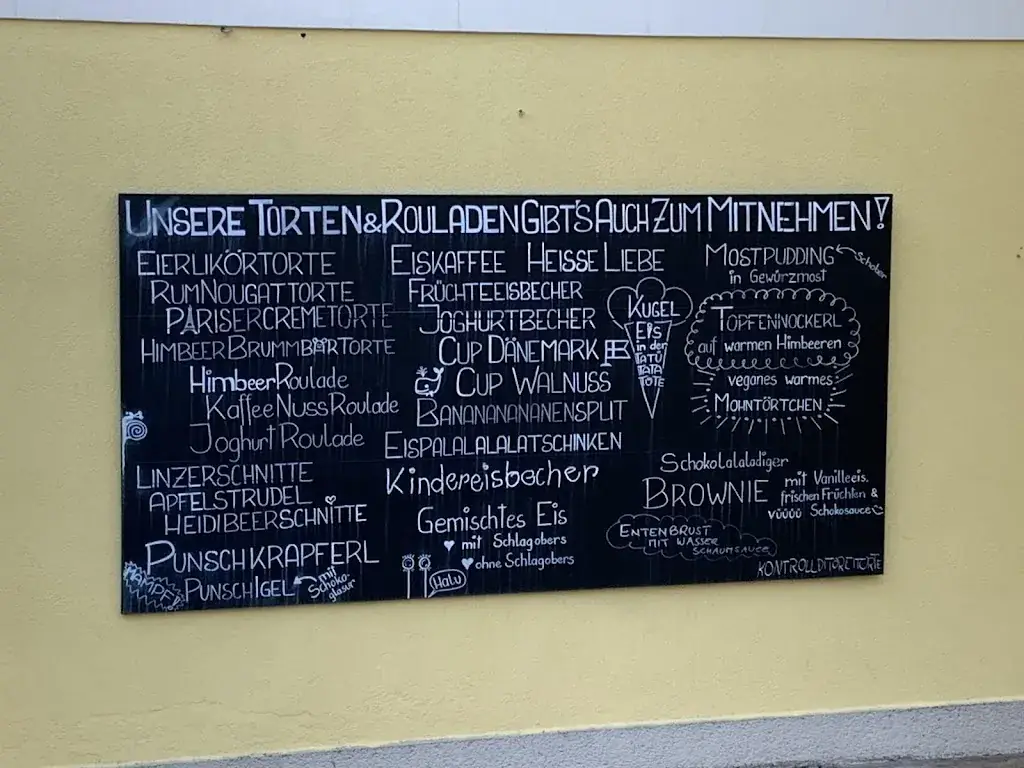 UNSERE TORTEN & ROULADEN GIBT'S AUCH ZUM MITNEHMEN!
EIERLIKÖRTORTE
RUMNOUGATTORTE
PARISERCREMETORTE
HIMBEERBRUMMBÄRTORTE
HimbeerRoulade
KaffeeNussRoulade
JoghurtRoulade
LINZERSCHNITTE
APFELSTRUDEL
HEIDIBEERSCHNITTE
PUNSCHKRAPFERL
MAMPF!
PUNSCHIGEL
mit
Schoko-
glasur
EISKAFFEE HEISSE LIEBE
FRÜCHTEEISBECHER
JOGHURTBECHER
CUP DÄNEMARK
CUP WALNUSS
BANANANANANENSPLIT
EISPALALALALATSCHINKEN
Kindereisbecher
Gemischtes Eis
mit Schlagobers
ohne Schlagobers
Halu
KUGEL
EIS
in der
TATÜ
TATA
TÜTE
MOSTPUDDING
Schober
in Gewürzmost
TOPFENNOCKERL
auf warmen Himbeeren
veganes warmes
MOHNTÖRTCHEN
Schokolalaladiger
BROWNIE
mit Vanilleeis,
frischen Früchten &
vüüüü Schokosauce
ENTENBRUST
MIT WASSER
SCHAUMSAUCE